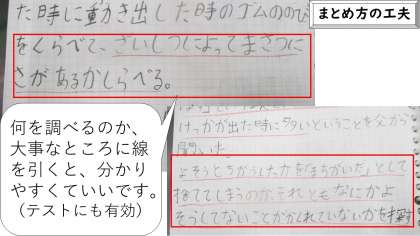 まとめ方の工夫
た時に動き出した時のゴムののび
をくらべて、ざいしつによってまさつに
さがあるかしらべる。
何を調べるのか、
大事なところに線
を引くと、分かり
やすくていいです。
(テストにも有効)
けっかが出た時に多いということを父から
聞いた。
よそうとちがうしたから「まちがいだ」として
捨ててしまうのか、それともなにかよ
そうしてないことがかくれていないかを探す